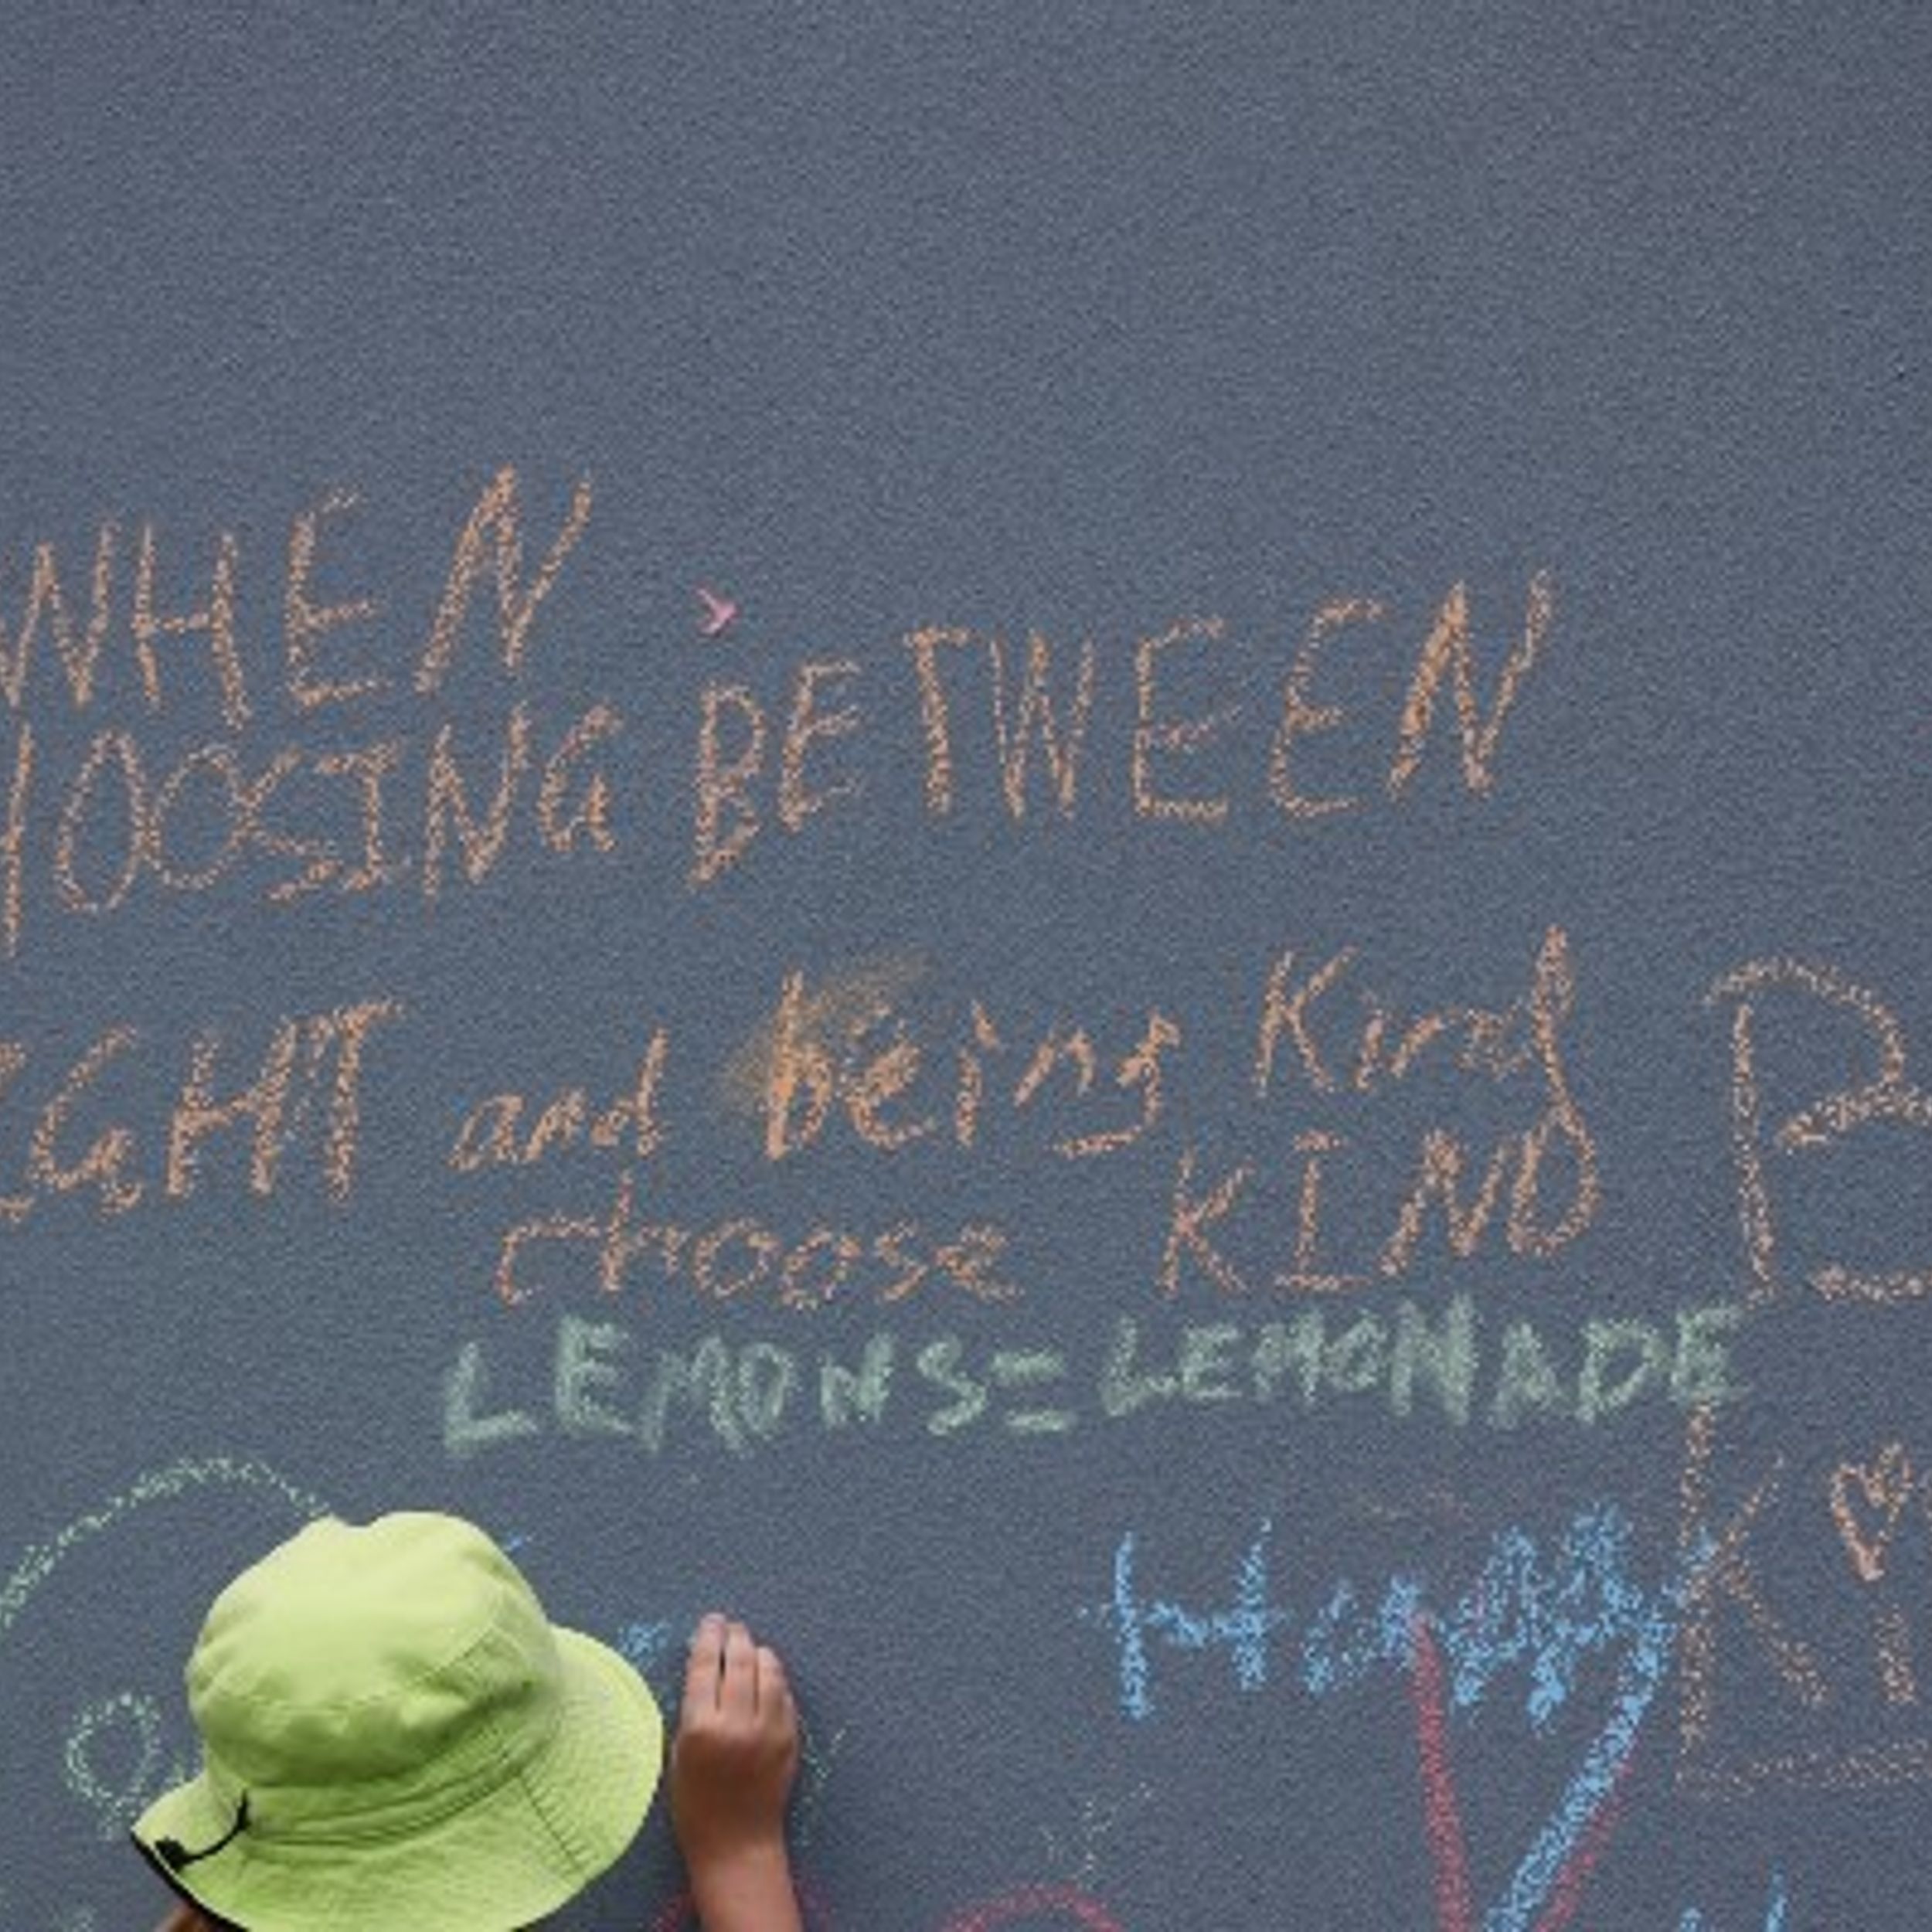 WHEN
HOOSING BETWEEN
IGHT and being Kind
choose KIND
LEMONS=LEMONADE
Happy
Ki